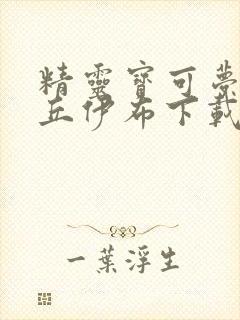 精靈寶可夢
丘伊布下載
一葉浮生